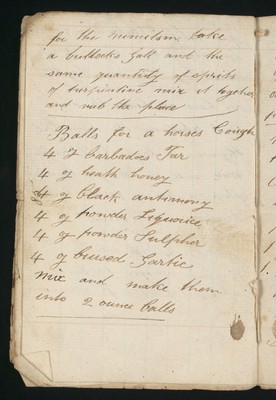 for the rumitism take
a bullocks Gall and the
same quantidy of spirits
of turpintine mix it togethe
and rub the place
Balls for a horses Cough
4 oz barbadoes Tar
4 oz heath honey
4 oz black antimony
4 oz powder Liquoice
4 oz powder Sulpher
4 oz brused Garlic
mix and make them
into 2 ounce balls